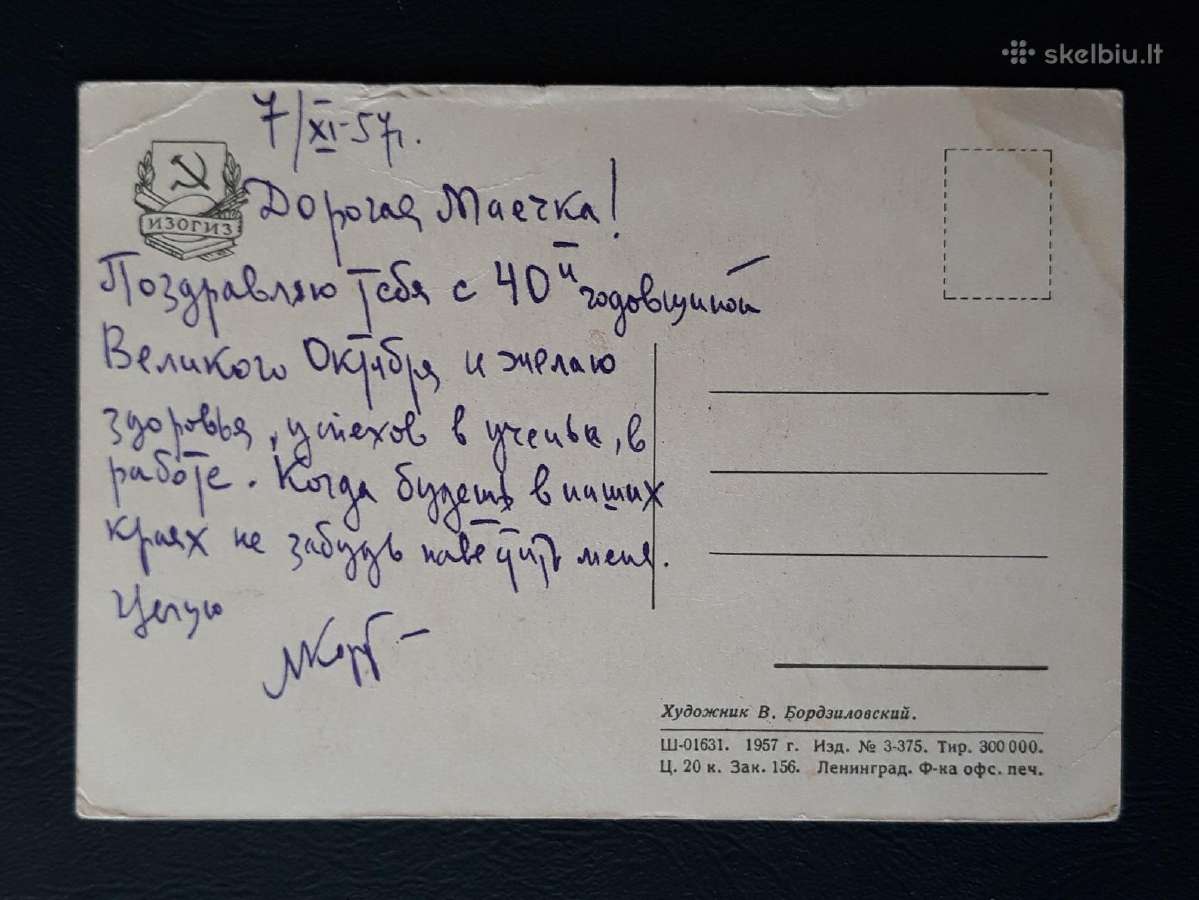 skelbiu.lt
7/XI-57г.
ИЗОГИЗ
Дорогая Маечка!
Поздравляю тебя с 40й годовщиной
Великого Октября и желаю
здоровья, успехов в ученье, в
работе. Когда будешь в наших
краях не забудь наветить меня.
Целую
Художник В. Бордзиловский.
Ш-01631. 1957 г. Изд. № 3-375. Тир. 300 000.
Ц. 20 к. Зак. 156. Ленинград. Ф-ка офс. печ.